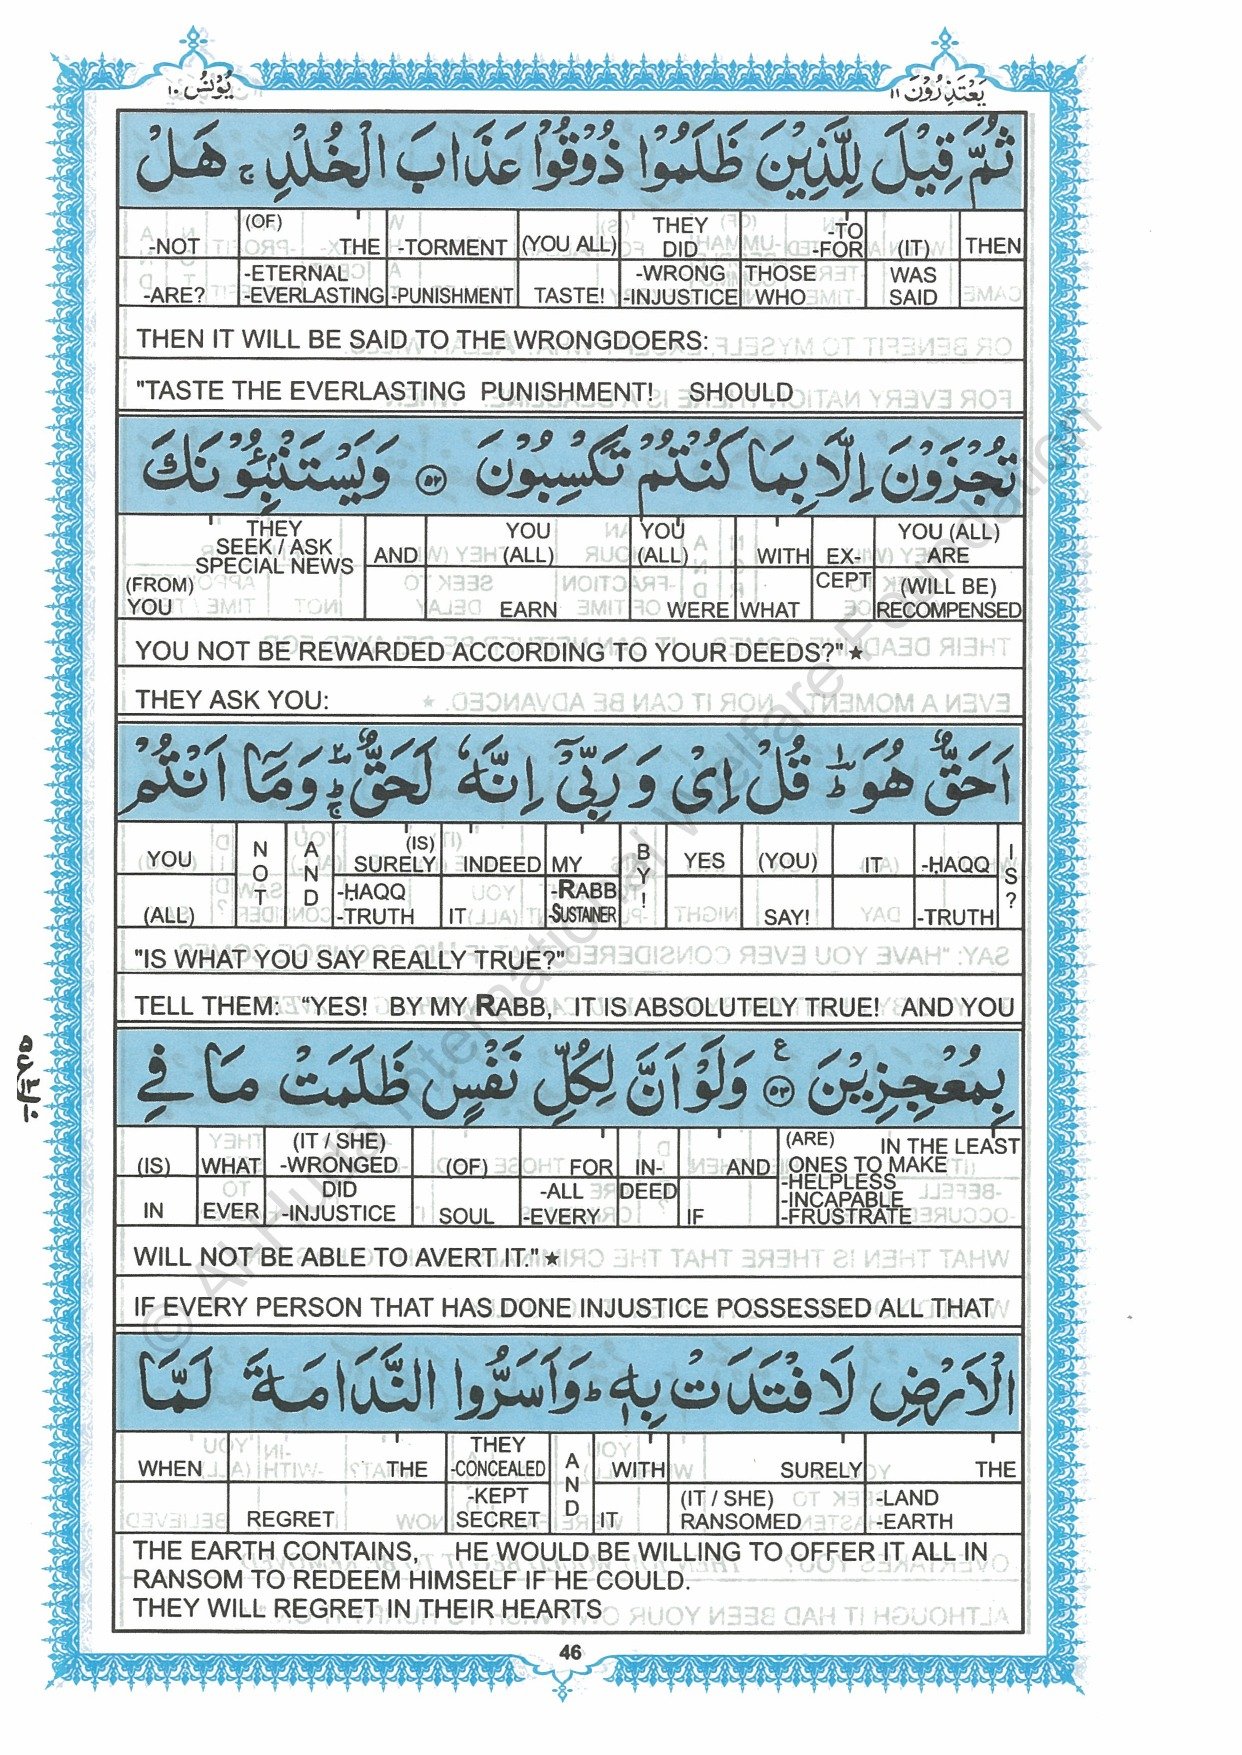 يُوْنُسُ ١٠
يَعْتَذِرُوْنَ ١١
ثُمَّ قِيْلَ لِلَّذِيْنَ ظَلَمُوْا ذُوْقُوْا عَذَابَ الْخُلْدِ ۚ هَلْ
-NOT (OF) THE -TORMENT (YOU ALL) THEY DID -TO -FOR (IT) THEN
-ARE? -ETERNAL -EVERLASTING -PUNISHMENT TASTE! -WRONG -INJUSTICE THOSE WHO WAS SAID
THEN IT WILL BE SAID TO THE WRONGDOERS:
"TASTE THE EVERLASTING PUNISHMENT! SHOULD
تُجْزَوْنَ اِلَّا بِمَا كُنْتُمْ تَكْسِبُوْنَ ۝٥٢ وَيَسْتَنْۢبِـُٔوْنَكَ
THEY SEEK / ASK SPECIAL NEWS AND YOU (ALL) YOU (ALL) WITH EX- YOU (ALL) ARE
(FROM) YOU EARN WERE WHAT CEPT (WILL BE) RECOMPENSED
YOU NOT BE REWARDED ACCORDING TO YOUR DEEDS?"★
THEY ASK YOU:
اَحَقٌّ هُوَ ؕ قُلْ اِيْ وَ رَبِّيْۤ اِنَّهٗ لَحَقٌّ ؕۚ وَمَاۤ اَنْتُمْ
YOU NOT AND (IS) SURELY INDEED MY BY! YES (YOU) IT -ḤAQQ IS?
(ALL) -ḤAQQ -TRUTH IT -RABB -SUSTAINER SAY! -TRUTH
"IS WHAT YOU SAY REALLY TRUE?"
TELL THEM: "YES! BY MY RABB, IT IS ABSOLUTELY TRUE! AND YOU
بِمُعْجِزِيْنَ ۝٥٣ ع وَلَوْ اَنَّ لِكُلِّ نَفْسٍ ظَلَمَتْ مَا فِي
(IS) WHAT (IT / SHE) -WRONGED (OF) FOR IN- AND (ARE) IN THE LEAST ONES TO MAKE
IN EVER DID -INJUSTICE SOUL -ALL -EVERY DEED IF -HELPLESS -INCAPABLE -FRUSTRATE
WILL NOT BE ABLE TO AVERT IT."★
IF EVERY PERSON THAT HAS DONE INJUSTICE POSSESSED ALL THAT
الْاَرْضِ لَافْتَدَتْ بِهٖ ؕ وَاَسَرُّوا النَّدَامَةَ لَمَّا
WHEN THE THEY -CONCEALED AND WITH SURELY THE
REGRET -KEPT SECRET IT (IT / SHE) RANSOMED -LAND -EARTH
THE EARTH CONTAINS, HE WOULD BE WILLING TO OFFER IT ALL IN
RANSOM TO REDEEM HIMSELF IF HE COULD.
THEY WILL REGRET IN THEIR HEARTS
46
© Al-Huda International Welfare Foundation